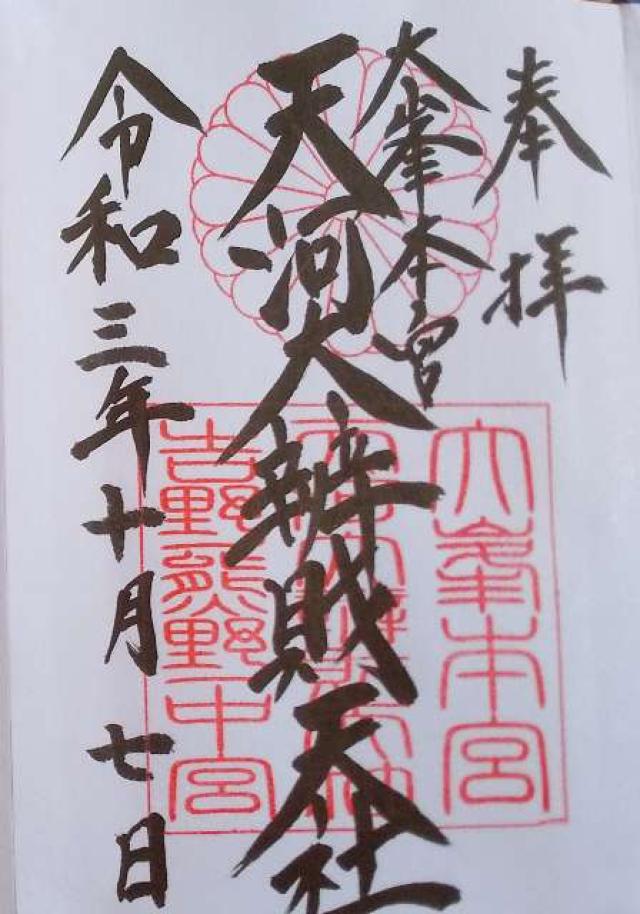 奉拝
大峯本宮
天河大辨財天社
令和三年十月七日
大峯本宮
吉野熊野中宮